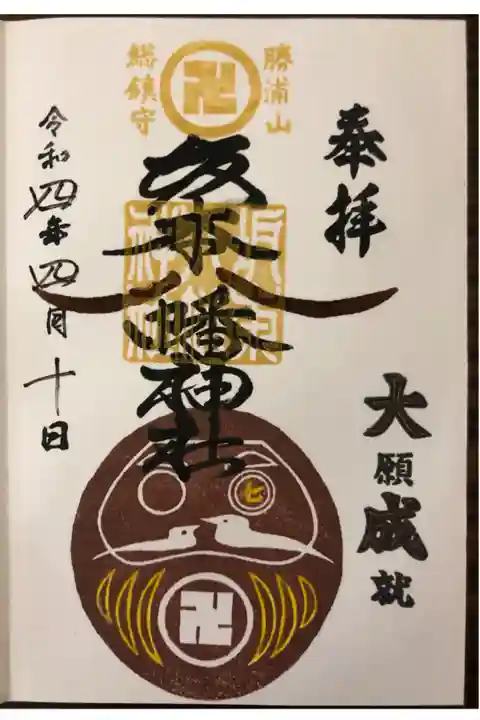 奉拝
大願成就
勝浦山
総鎮守
八幡神社
令和四年四月十日
七